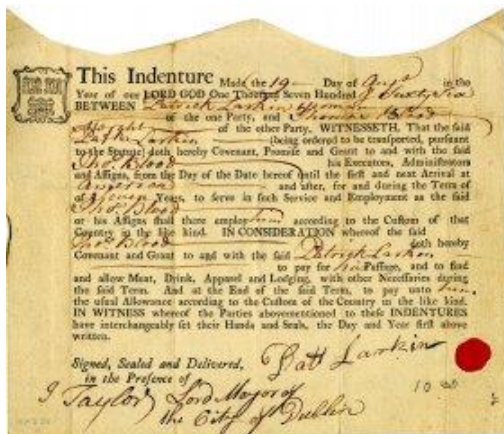 This Indenture Made the 19 Day of Augt in the
Year of our LORD GOD One Thousand Seven Hundred & Sixty Six
BETWEEN Patrick Larkin yeoman
of the one Party, and Thomas Blood
of the other Party, WITNESSETH, That the said
Larkin (being ordered to be transported, pursuant
to the Statute) doth hereby Covenant, Promise and Grant to and with the said
Thos Blood his Executors, Administrators
and Assigns, from the Day of the Date hereof until the first and next Arrival at
and after, for and during the Term of
Seven Years, to serve in such Service and Employment as the said
Thos Blood
or his Assigns shall there employ him according to the Custom of that
Country in the like kind. IN CONSIDERATION whereof the said
Thos Blood doth hereby
Covenant and Grant to and with the said Patrick Larkin
to pay for his Passage, and to find
and allow Meat, Drink, Apparel and Lodging, with other Necessaries during
the said Term. And at the End of the said Term, to pay unto him
the usual Allowance according to the Custom of the Country in the like kind.
IN WITNESS whereof the Parties abovementioned to these INDENTURES
have interchangeably set their Hands and Seals, the Day and Year first above
written.
Signed, Sealed and Delivered,
in the Presence of
Patt Larkin
J Taylor Lord Mayor of
the City of Dublin